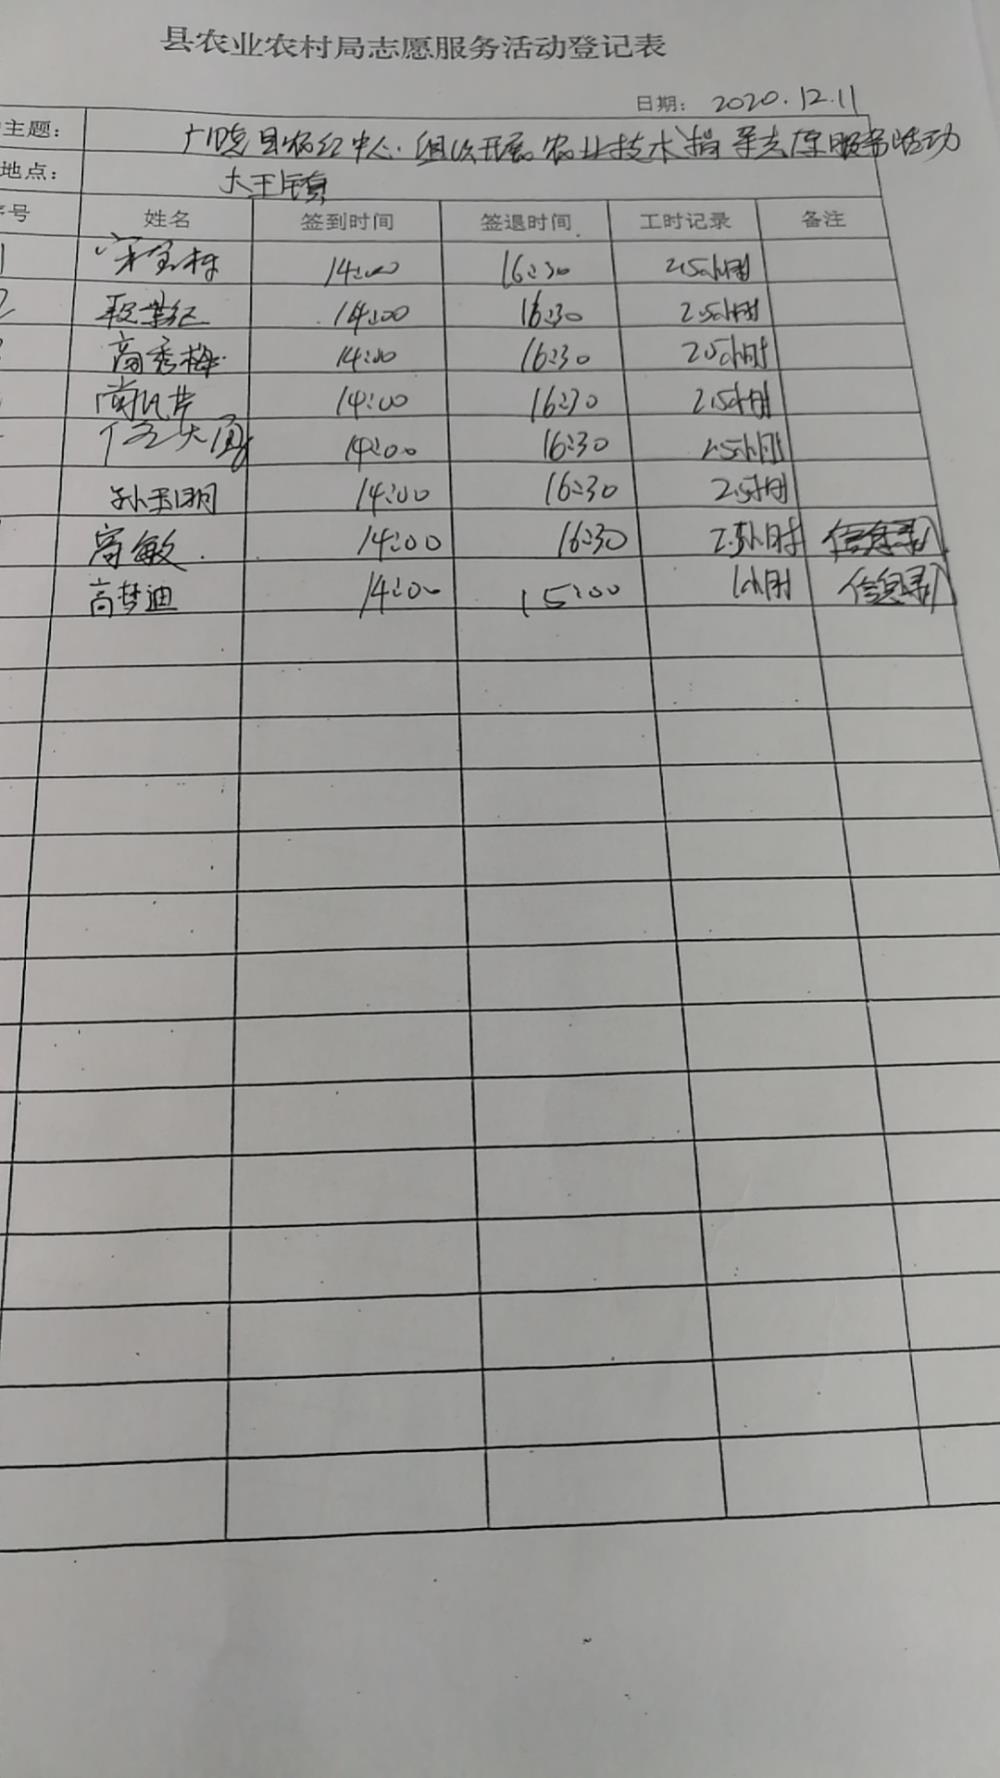 县农业农村局志愿服务活动登记表
日期: 2020.12.11
主题: 广饶县农经中心.组织开展农业技术指导志愿服务活动
地点: 大王镇
序号 姓名 签到时间 签退时间 工时记录 备注
1 14:00 16:30 2.5小时
2 14:00 16:30 2.5小时
高秀梅 14:00 16:30 2.5小时
14:00 16:30 2.5小时
14:00 16:30 2.5小时
孙玉明 14:00 16:30 2.5小时
高敏 14:00 16:30 2.5小时 信息录入
高梦迪 14:00 15:00 1小时 信息录入